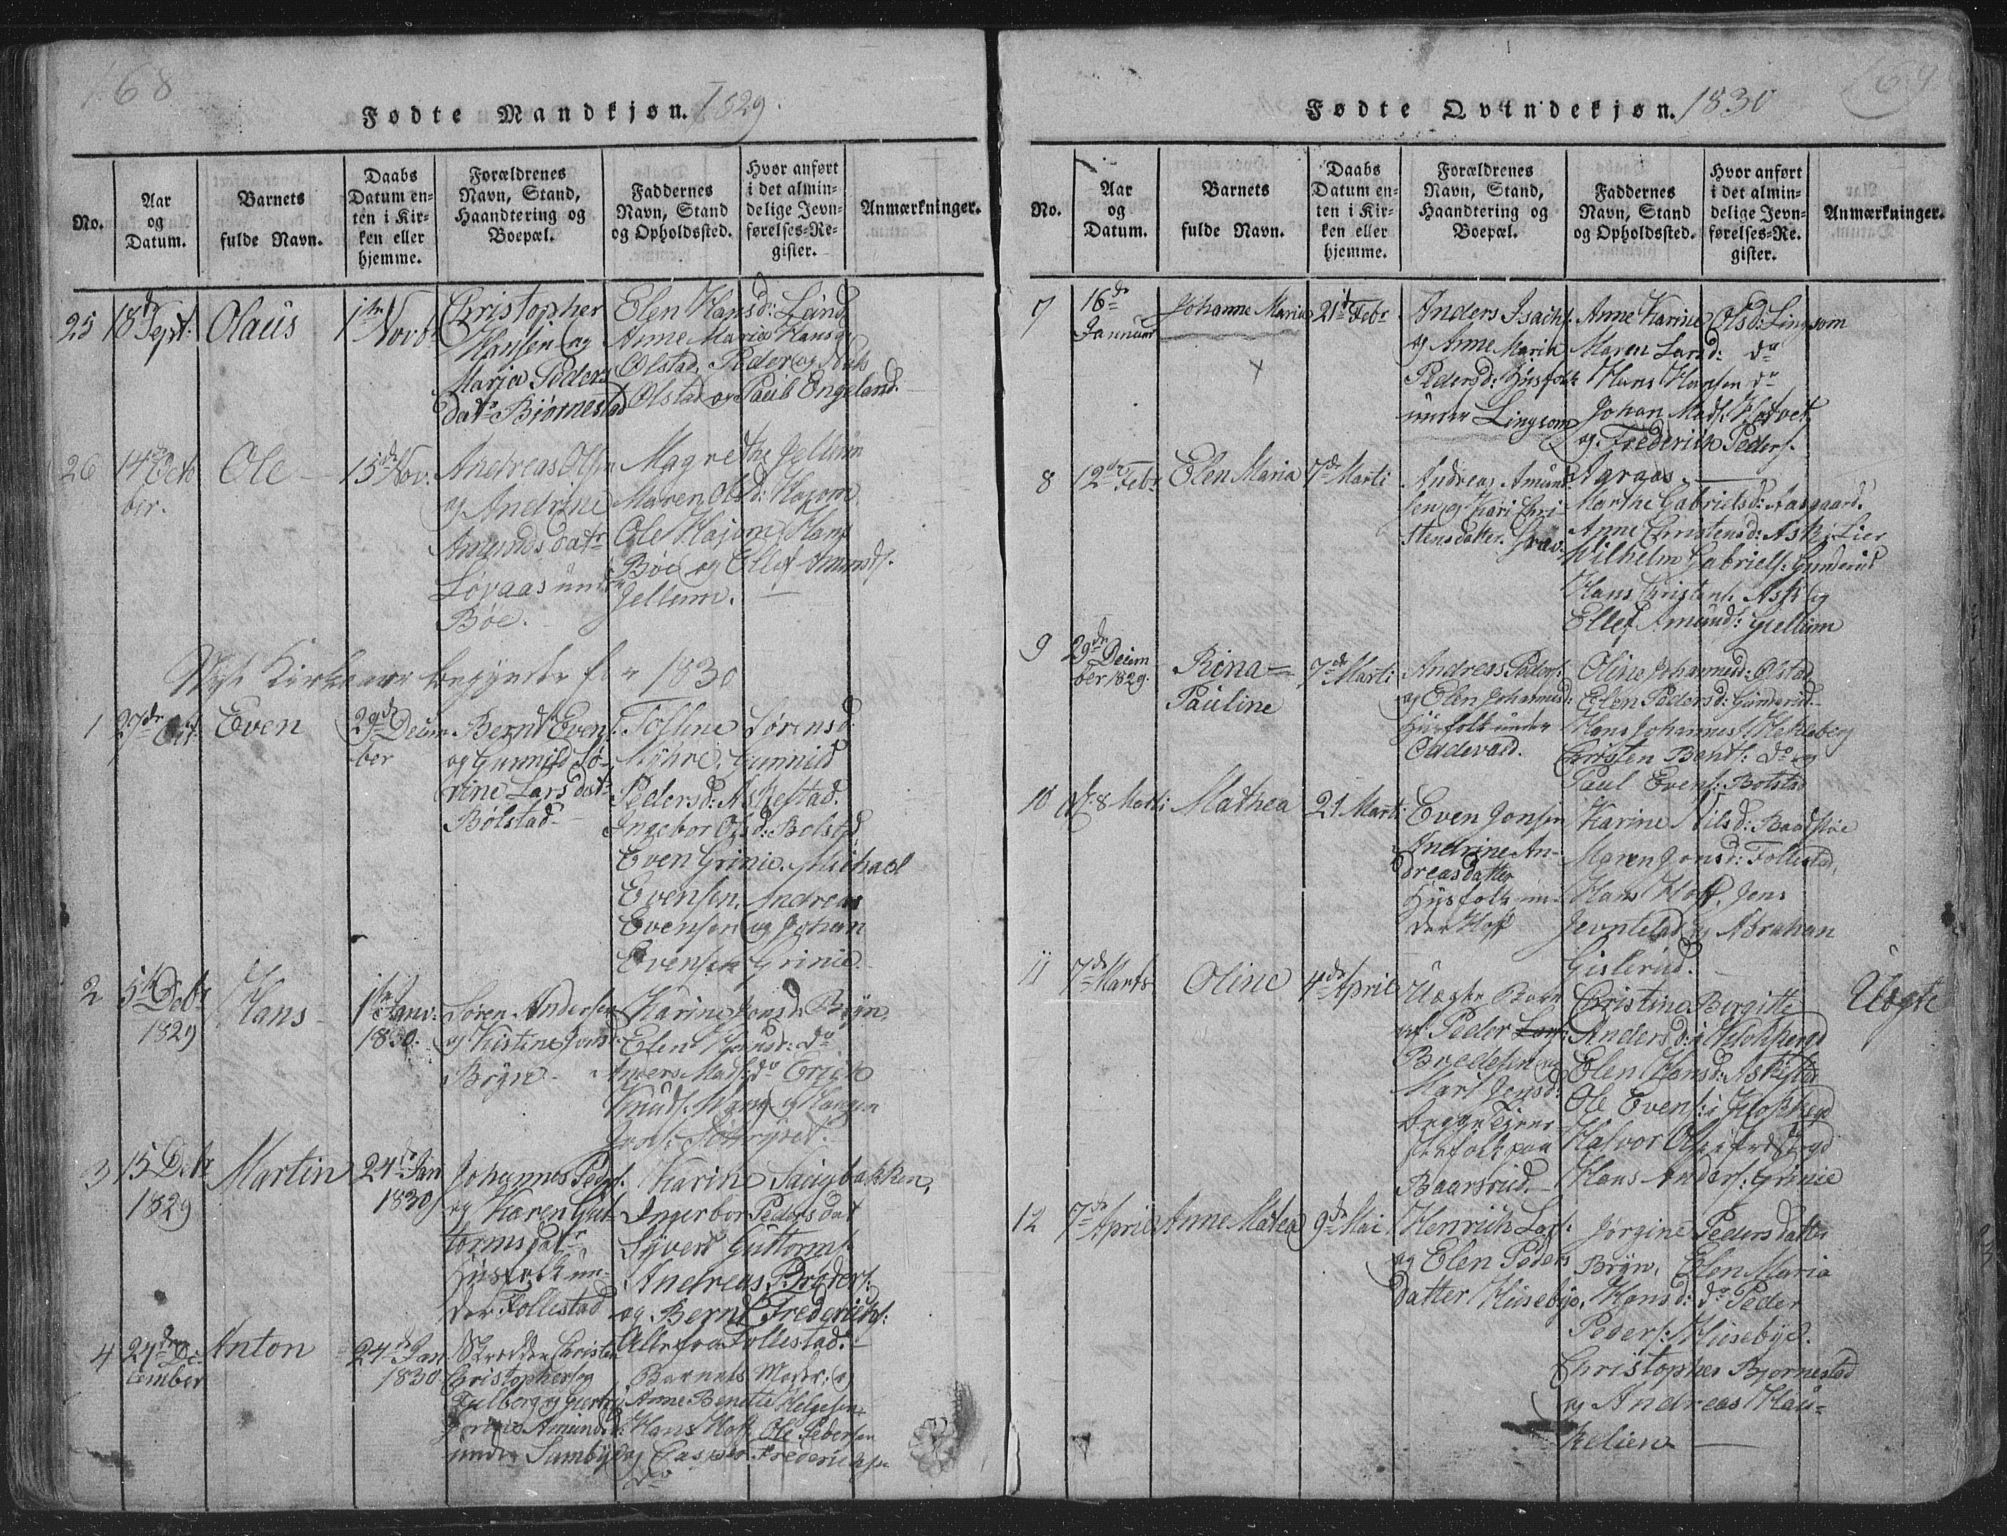 168
Fødte Mandkjøn. 1829.
No.
Aar og Datum.
Barnets fulde Navn.
Daabs Datum enten i Kirken eller hjemme.
Forældrenes Navn, Stand, Haandtering og Boepæl.
Faddernes Navn, Stand og Opholdssted.
Hvor anført i det almindelige Jevnførelses-Register.
Anmærkninger.
25 18d Sept: Olaüs 1ste Novb
Christopher
Hansen og
Maria Peders
datr Bjørnestad
Elen Hansd: Lünd
Anne Maria Hansd
Olstad, Peder
Olstad og Paül Engeland.
26 14de Octb
ber. Ole 15de Nov.
Andreas Olsen
og Andrine
Amundsdatr
Løvaas ünder
Bøe.
Magrethe Jellüm
Maren Olsd: Hajom
Ole Hajom, Hans
Bøe og Ellef Amunds.
Jellum.
Nyt Kirkeaar begynder for 1830
1 27de Oct: Even 29de Decem
ber
Bernt Evens.
og Gunnild Sø-
rine Larsdatr
Bølstad
Tolline Sørensd
Myhre, Gunnild
Pedersd: Askestad.
Ingebor Olsd: Bolstad
Even Grinie. Michael
Evensen. Andreas
Evensen og Johan
Evensen Grinie.
2 5te Decbr
1829 Hans 1ste Janv.
1830.
Søren Andersen
og Kistine Jensd
Brÿn
Karine Jensd Brÿn
Elen Hansd: do
Anders Mads. do Erik
Knuds.
3 15 Decb
1829 Martin 24de Jan
1830
Johannes Peders.
og Karen Gut-
tormsdatr
Hüsfolk un-
der Follestad
Karine Saugbakken,
Ingerbor Pedersdat
Syvert Guttorms.
Andreas Broders:
og Bernt Frederichs:
Alle fra Follestad.
4 24de De-
cember Anton 24de Jan
1830
Skredder Christen
Christophers og
Amundsd:
under Sumbÿe
Barnets Moder, og
Anne Benette Helgesen
Hans Hoff, Ole Pedersen
og Casper Frederichs.
do
169
Fødte Qvindekjøn. 1830
No.
Aar og Datum.
Barnets fulde Navn.
Daabs Datum enten i Kirken eller hjemme.
Forældrenes Navn, Stand, Haandtering og Boepæl.
Faddernes Navn, Stand og Opholdssted.
Hvor anført i det almindelige Jevnførelses-Register.
Anmærkninger.
7 16de
Januar Johanne Maria 21de Febr
Anders Isachs.
og Anne Maria
Pedersd: Hüsfolk
ünder Lingsom
Anne Karine Olsd: Lingsom
Maren Larsd: do
Hans Hansen do
Johan Mads. Hotvet
og Frederich Peders.
Agraas
8 12te Febr Elen Maria 7de Marti
Andreas Amund
sen og Kari Chri
stensdatter. Grav.
Marthe Gabrielsd: Aasgaard.
Anne Christensd: Ask i Lier
Wilhelm Gabriels: Gunderud
Hans Christens. Ask og
Ellef Amund: Gjellüm
9 29de Decem
ber 1829. Rina
Pauline 7de Marti
Andreas Peders.
og Elen Johannisd:
Hüsfolk under
Oddevald.
Oline Johannisd: Olstad
Elen Pedersd: Günnerud
Hans Johannes. Hekleberg
Christen Bents: do og
Paul Evens: Bolstad
10 d. 8 Marti Mathea 21 Marti
Even Jonsen
Andrine An-
dreasdatter
Hüsfolk un-
der Hoff
Karine Nilsd: Baadstøe
Maren Jonsd: Follestad,
Hans Hoff, Jens
Jevnlestad og Abraham
Gislerud.
11 7de Marts Oline 4de April
Uægte Barn
af Peder
Bredesen og
Mari Jensd:
Begge Tjene-
stefolk paa
Baarsrud.
Christine Bergitte
Andersd: i Klokkergd
Elen Hansd: Askestad
Ole Evens: i Klokkergd
Halvor Ols. i
Hans Anders: Grinie
Uægte
12 7de April Anne Mathea 9de Mai
Henrich Lars.
og Elen Peders
datter Hüsebye.
Jørgine Pedersdatter
Brÿn, Elen Maria
Hansd: do Peder
Peders: Hüsebye.
Christopher Bjørnestad
og Andreas Haü-
kelien